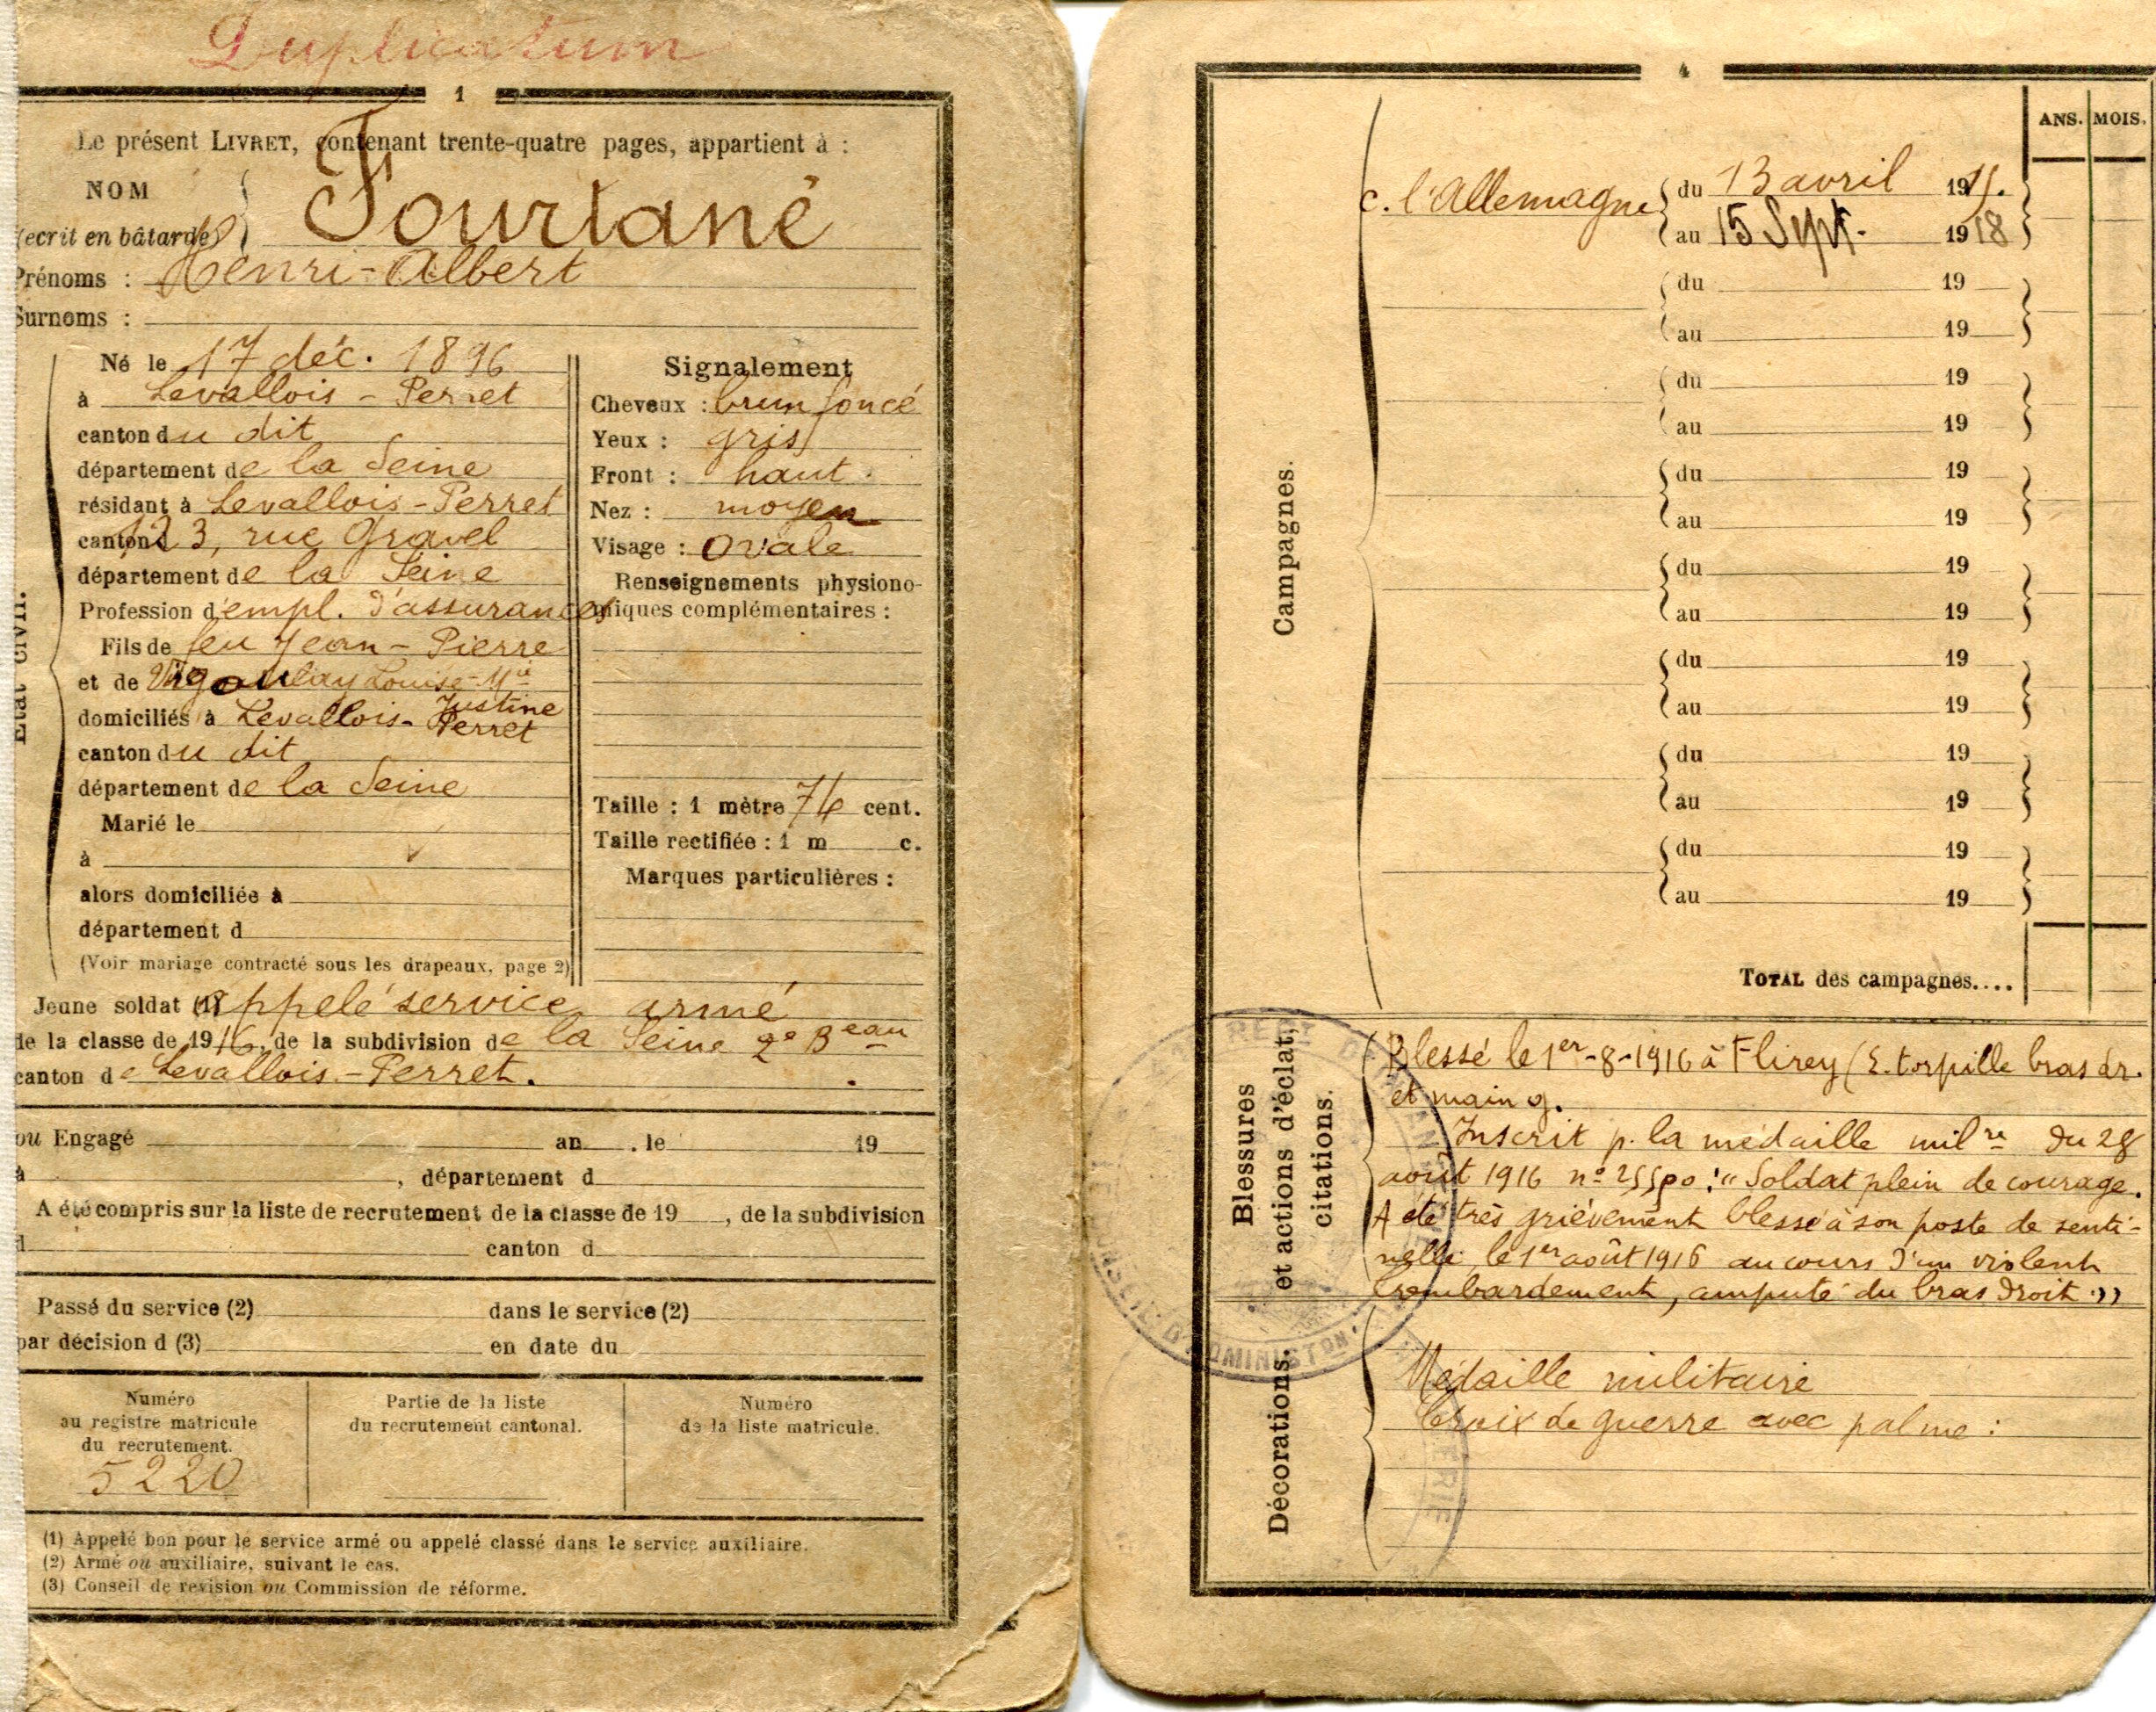 Duplicatum
1
Le présent LIVRET, contenant trente-quatre pages, appartient à :
NOM
(écrit en bâtarde)
Tourtané
Prénoms : Henri-Albert
Surnoms :
État civil.
Né le 17 déc. 1896
à Levallois-Perret
canton du dit
département de la Seine
résidant à Levallois-Perret
canton 123, rue Gravel
département de la Seine
Profession d'empl. d'assurances
Fils de feu Jean-Pierre
et de Louise-Mie
Justine
domiciliés à Levallois-Perret
canton du dit
département de la Seine
Marié le
à
alors domiciliée à
département d
(Voir mariage contracté sous les drapeaux, page 2)
Signalement
Cheveux : brun foncé
Yeux : gris
Front : haut.
Nez : moyen
Visage : Ovale
Renseignements physiono-
miques complémentaires :
Taille : 1 mètre 74 cent.
Taille rectifiée : 1 m c.
Marques particulières :
Jeune soldat appelé service armé
de la classe de 1916, de la subdivision de la Seine 2e Beau
canton de Levallois-Perret.
ou Engagé an . le 19
à , département d
A été compris sur la liste de recrutement de la classe de 19 , de la subdivision
d canton d
Passé du service (2) dans le service (2)
par décision d (3) en date du
Numéro
au registre matricule
du recrutement.
5220
Partie de la liste
du recrutement cantonal.
Numéro
de la liste matricule.
(1) Appelé bon pour le service armé ou appelé classé dans le service auxiliaire.
(2) Armé ou auxiliaire, suivant le cas.
(3) Conseil de revision ou Commission de réforme.
4
ANS. MOIS.
Campagnes.
c. l'Allemagne du 13 avril 1915.
au 15 Sept. 1918
du 19
au 19
du 19
au 19
du 19
au 19
du 19
au 19
du 19
au 19
du 19
au 19
du 19
au 19
TOTAL des campagnes....
Blessures
et actions d'éclat,
citations.
Blessé le 1er-8-1916 à Flirey (E. torpille bras dr.
et main g.
Inscrit p. la médaille milre du 28
août 1916 n° : "Soldat plein de courage.
A été très grièvement blessé à son poste de senti-
nelle, le 1er août 1916 au cours d'un violent
bombardement, amputé du bras droit."
Décorations.
Médaille militaire
Croix de guerre avec palme :
CONSEIL D'ADMINISTON